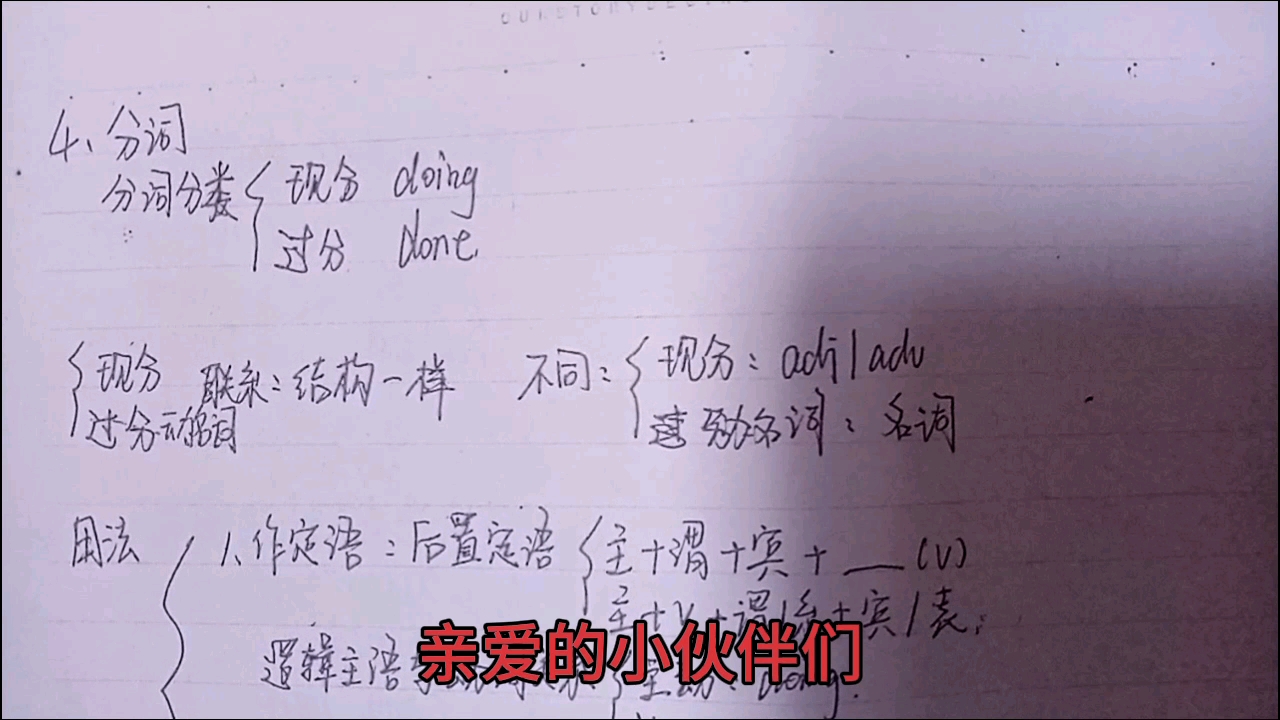 4、分词
分词分类 { 现分 doing
过分 done.
{ 现分 联系：结构一样 不同： { 现分：adj / adv
过分 动名词 动名词：名词
用法 { 1、作定语：后置定语 { 主+谓+宾+ ___ (v)
主+v+谓/系+宾/表.
逻辑主语
亲爱的小伙伴们